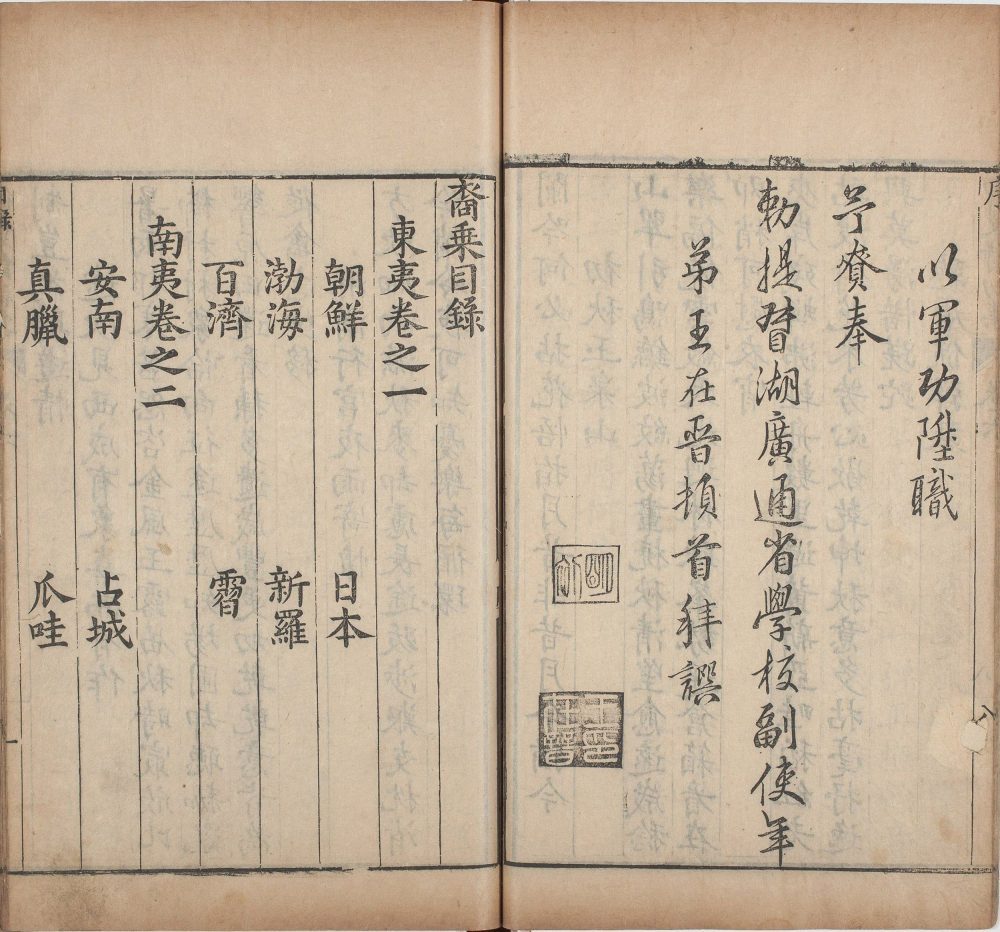 以軍功陞職
予賚奉
勅提督湖廣通省學校副使年
弟王在晉頓首拜譔
王在晉
裔乗目錄
東夷卷之一
朝鮮 日本
渤海 新羅
百濟 霫
南夷卷之二
安南 占城
真臘 瓜哇
目錄
一